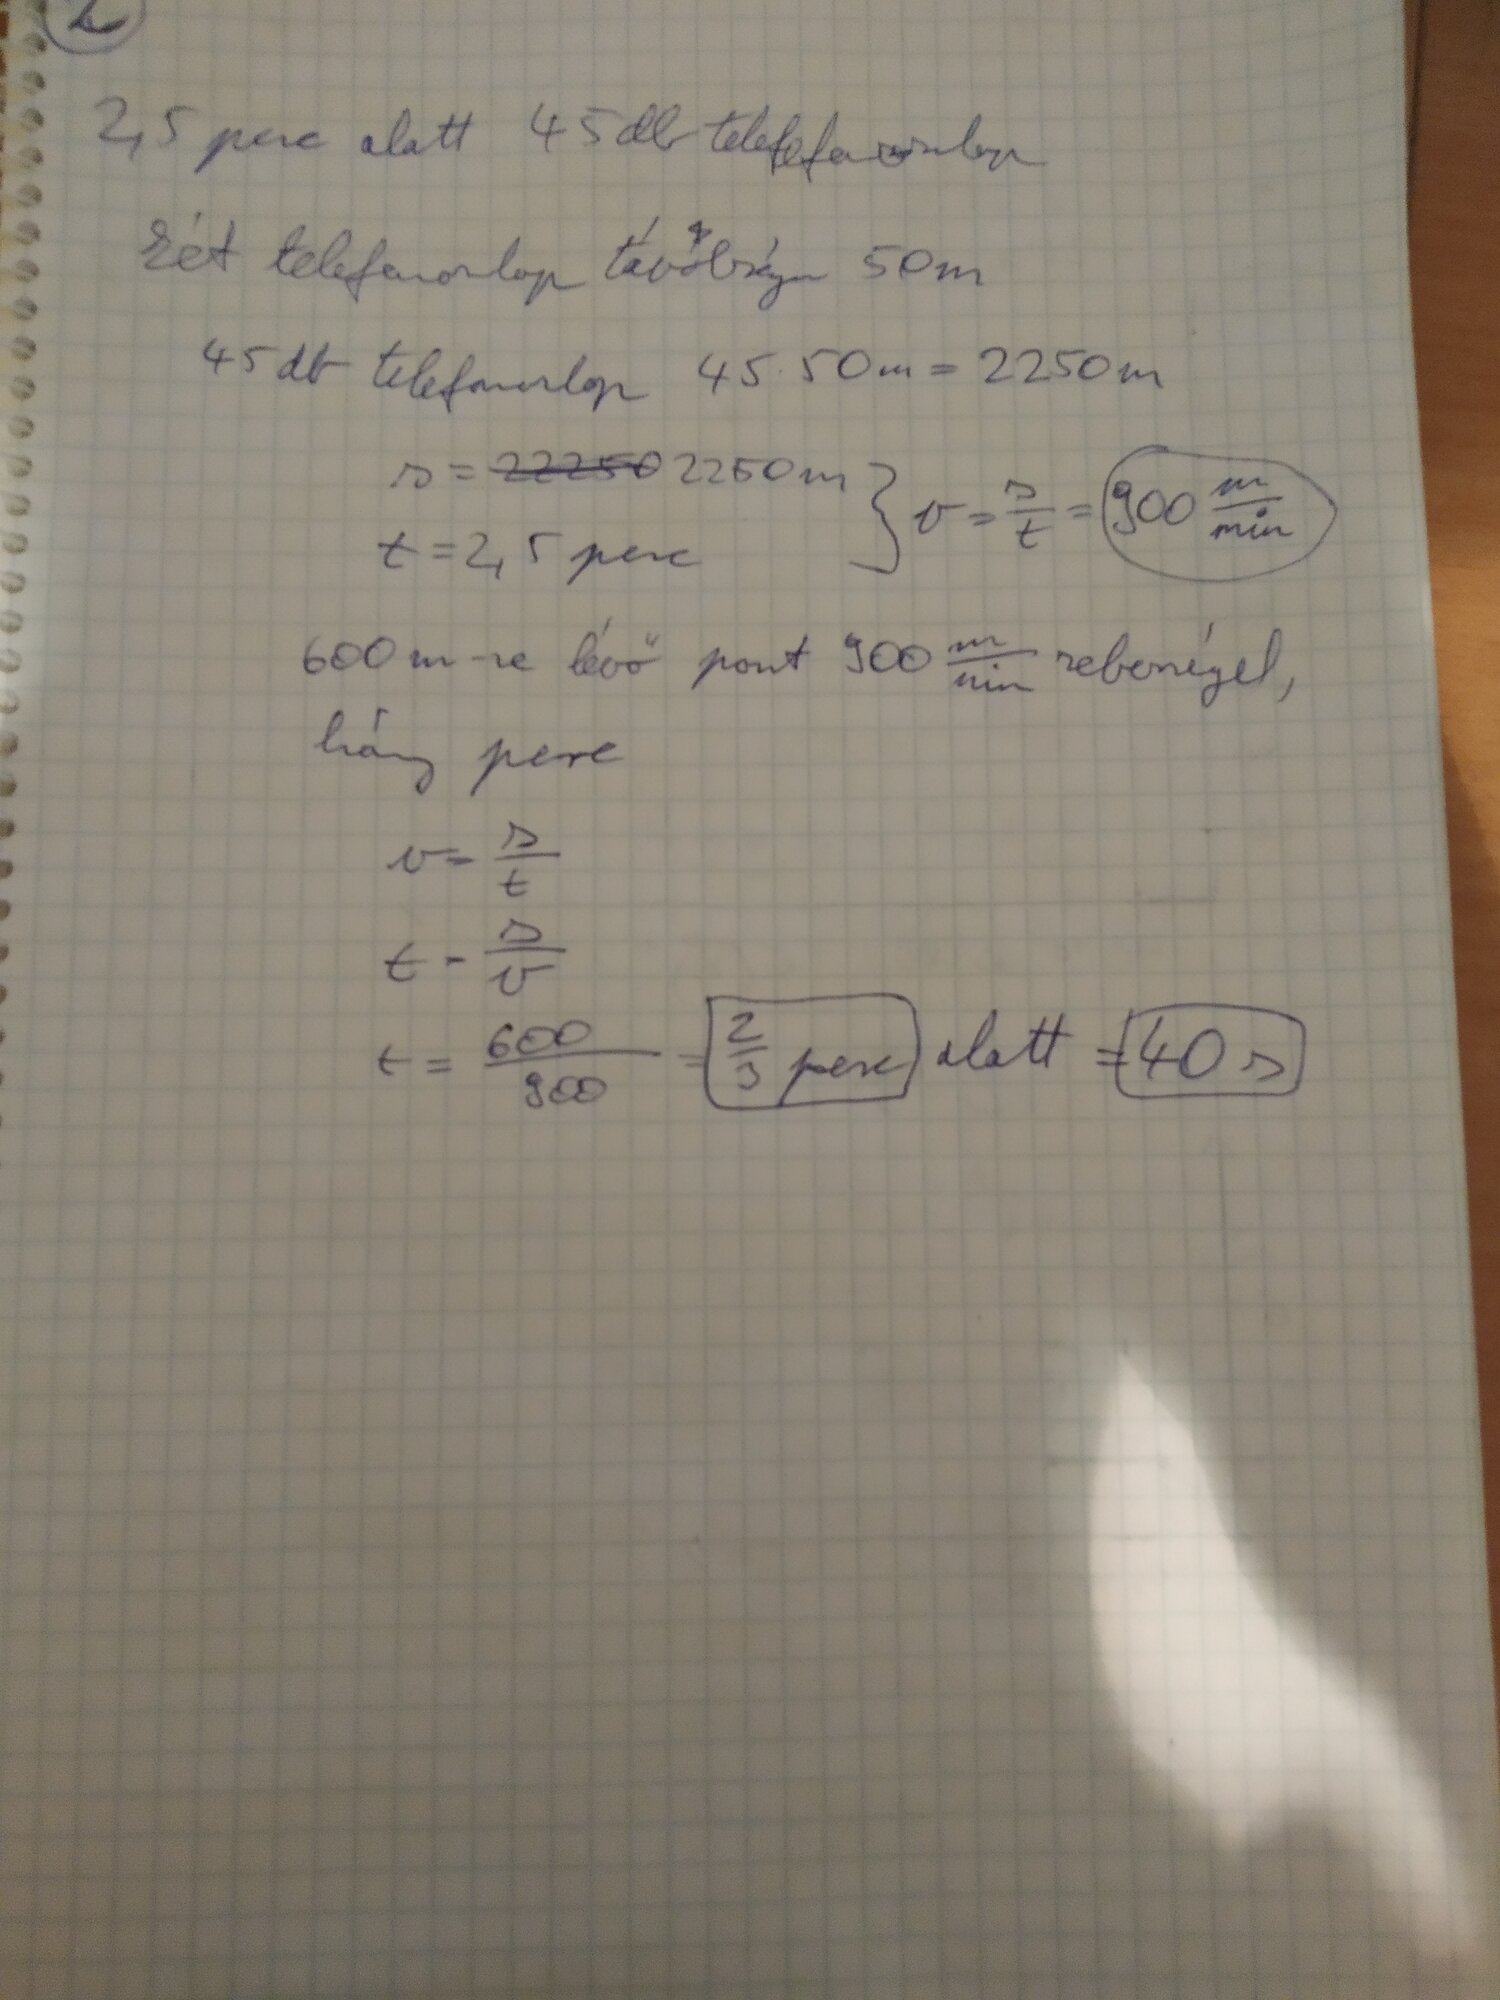 2
2,5 perc alatt 45 db telefefaxonlop
két telefaxonlop távolsága 50m
45 db telefaxonlop 45·50m = 2250m
s = 22250 2250m
t = 2,5 perc
v = s/t = 900 m/min
600m-re lévő pont 900 m/min sebességel,
hány perc
v = s/t
t = s/v
t = 600/900 = 2/3 perc alatt = 40 s